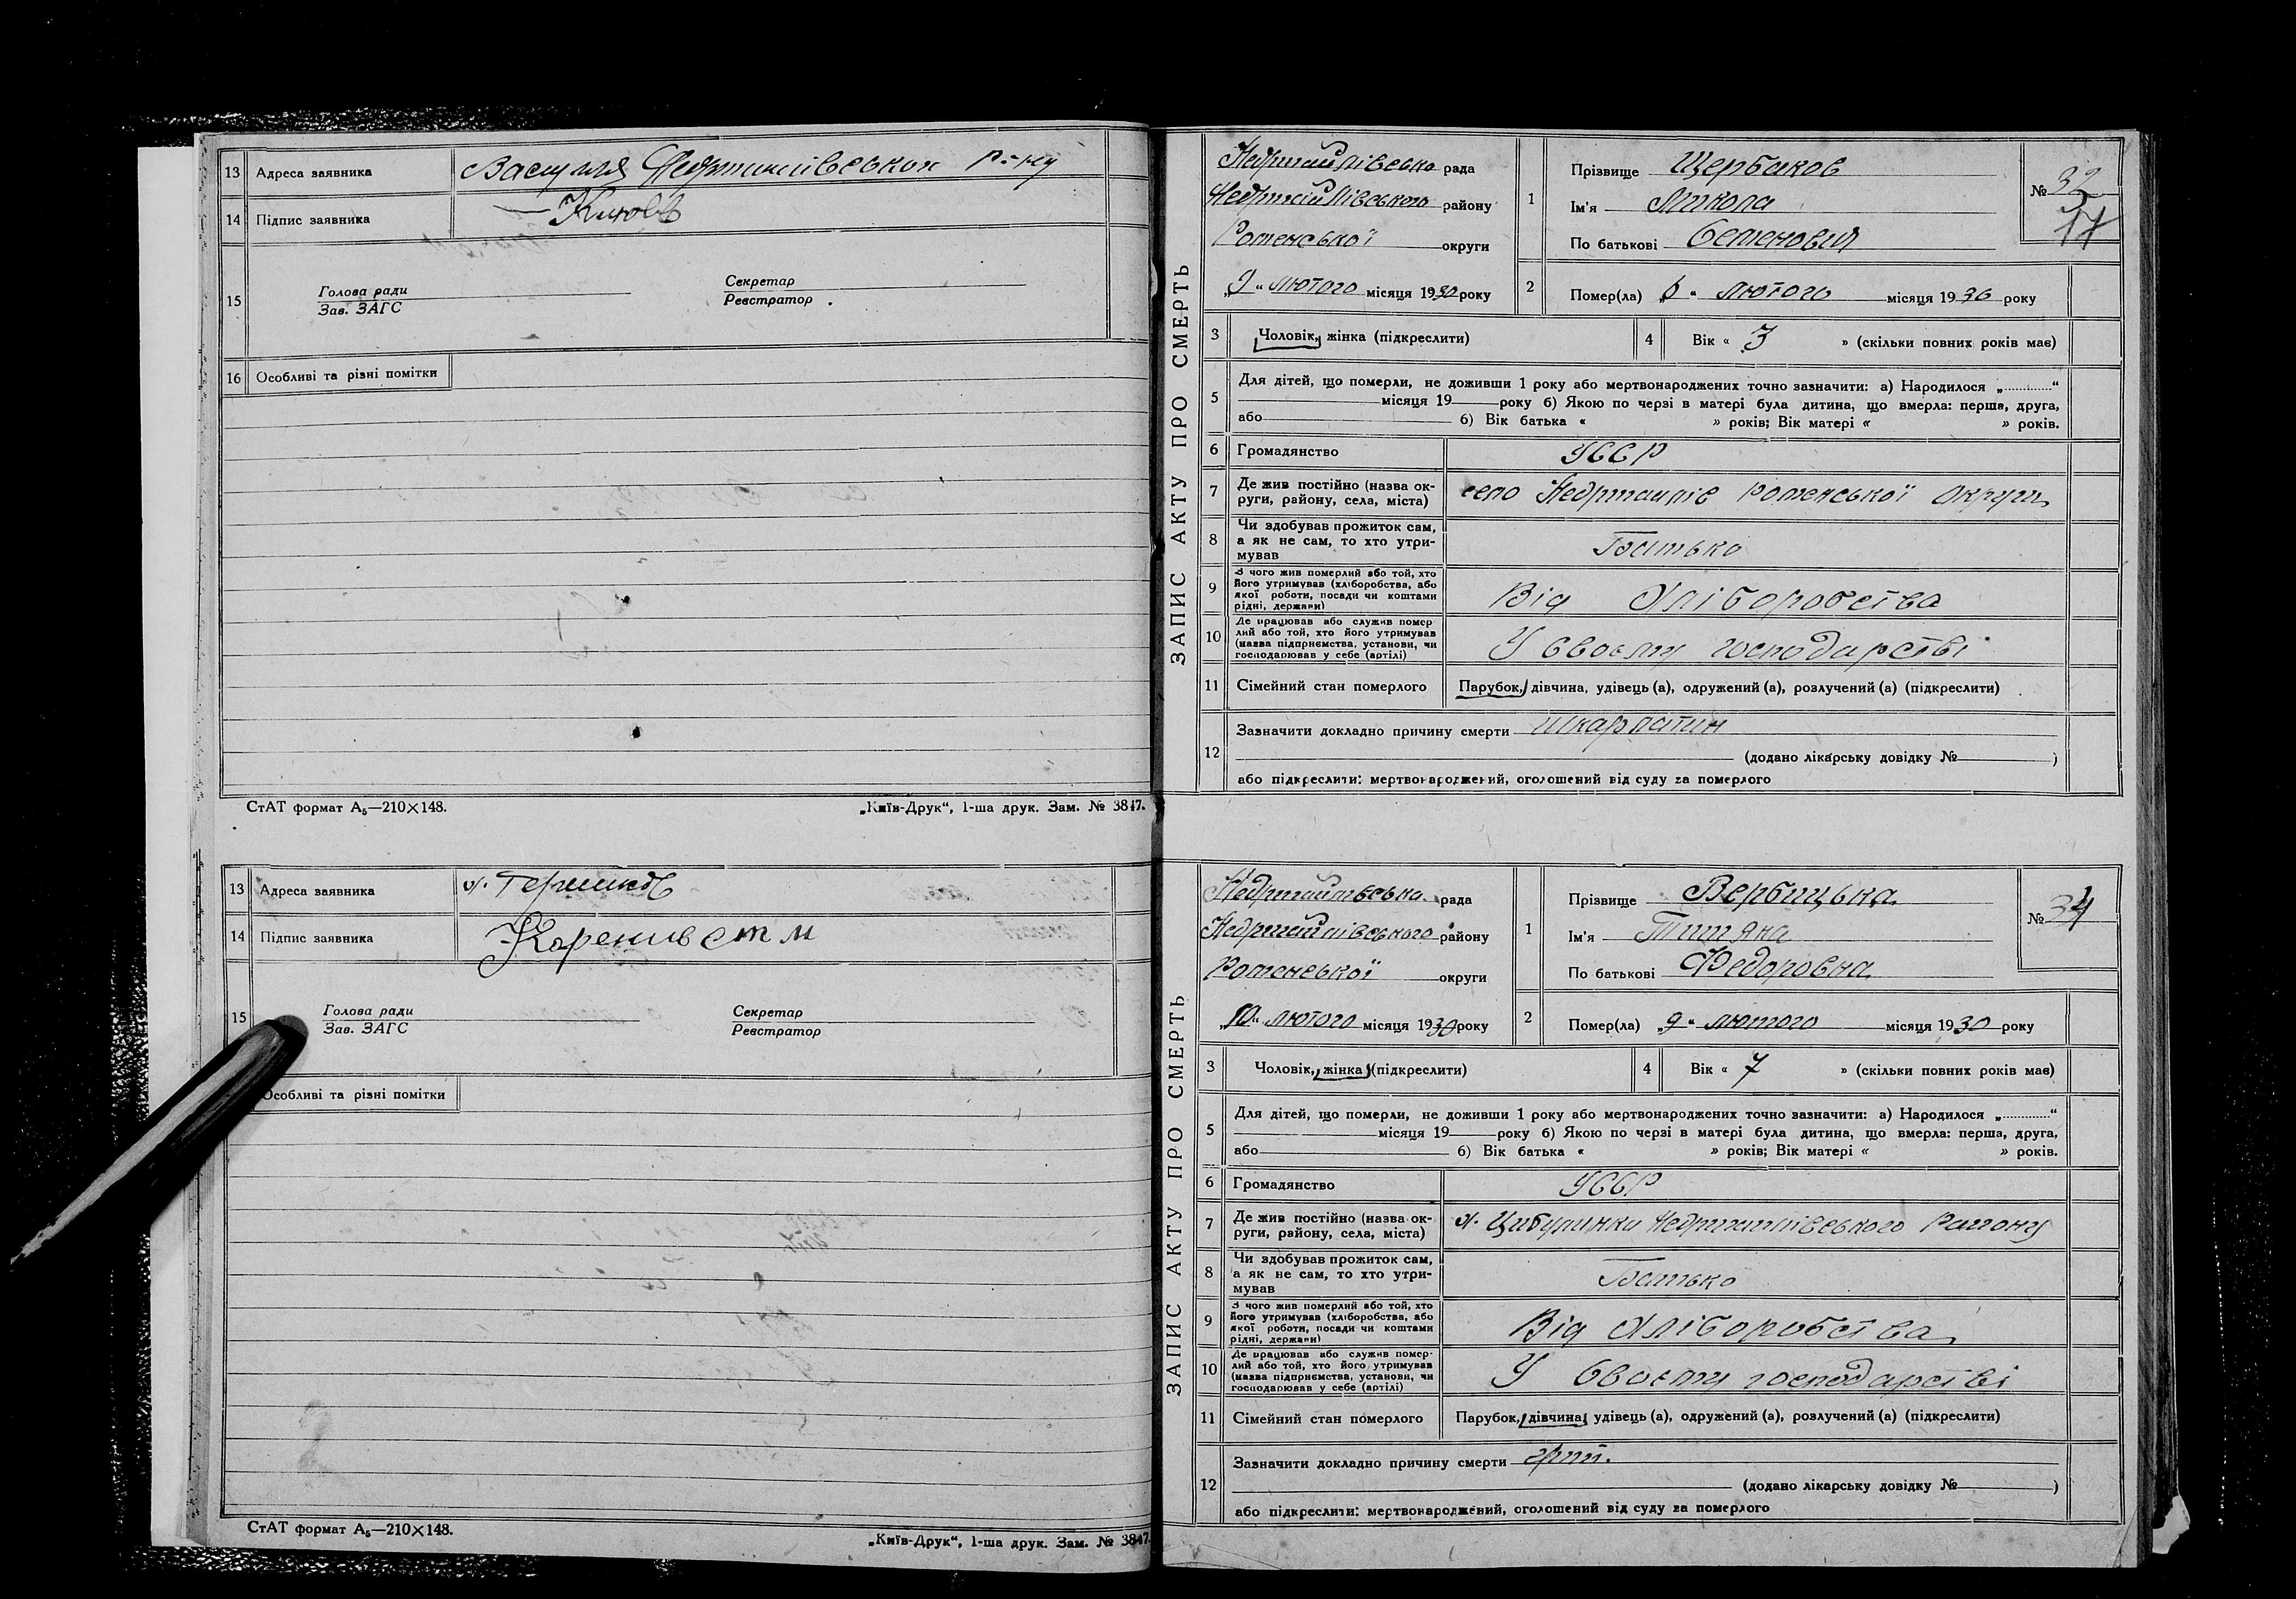 13 Адреса заявника Василля Недригайлівськой р-ну
14 Підпис заявника
15 Голова ради
Зав. ЗАГС
Секретар
Реєстратор
16 Особливі та різні помітки
СтАТ формат А₅—210×148.
„Київ-Друк“, 1-ша друк. Зам. № 3847.
13 Адреса заявника х.
14 Підпис заявника
15 Голова ради
Зав. ЗАГС
Секретар
Реєстратор
Особливі та різні помітки
СтАТ формат А₅—210×148.
„Київ-Друк“, 1-ша друк. Зам. № 3847
ЗАПИС АКТУ ПРО СМЕРТЬ
Недригайлівська рада
Недригайлівського району
Роменської округи
„9“ лютого місяця 1930 року
1 Прізвище Щербаков
Ім'я Микола
По батькові Семенович
№ 32
2 Помер(ла) „6“ лютого місяця 1930 року
3 Чоловік, жінка (підкреслити)
4 Вік « 3 » (скільки повних років має)
5 Для дітей, що померли, не доживши 1 року або мертвонароджених точно зазначити: а) Народилося „............“
місяця 19 року б) Якою по черзі в матері була дитина, що вмерла: перша, друга,
або б) Вік батька « » років; Вік матері « » років.
6 Громадянство УССР
7 Де жив постійно (назва ок-
руги, району, села, міста) село Недригайлів Роменської округи
8 Чи здобував прожиток сам,
а як не сам, то хто утри-
мував Батько
9 З чого жив померлий або той, хто
його утримував (хліборобства, або
якої роботи, посади чи коштами
рідні, держави) Від Хліборобства
10 Де працював або служив помер
лий або той, хто його утримував
(назва підприємства, установи, чи
господарював у себе (артілі) У Своєму господарстві
11 Сімейний стан померлого Парубок, дівчина, удівець (а), одружений (а), розлучений (а) (підкреслити)
12 Зазначити докладно причину смерти шкарлатин
(додано лікарську довідку № )
або підкреслити: мертвонароджений, оголошений від суду за померлого
ЗАПИС АКТУ ПРО СМЕРТЬ
Недригайлівська рада
Недригайлівського району
Роменської округи
„10“ лютого місяця 1930 року
1 Прізвище Вербицька
Ім'я Титяна
По батькові Федоровна
№ 34
2 Помер(ла) „9“ лютого місяця 1930 року
3 Чоловік, жінка (підкреслити)
4 Вік « 7 » (скільки повних років має)
5 Для дітей, що померли, не доживши 1 року або мертвонароджених точно зазначити: а) Народилося „............“
місяця 19 року б) Якою по черзі в матері була дитина, що вмерла: перша, друга,
або б) Вік батька « » років; Вік матері « » років.
6 Громадянство УССР
7 Де жив постійно (назва ок-
руги, району, села, міста) х. Цибулинки Недригайлівського Району
8 Чи здобував прожиток сам,
а як не сам, то хто утри-
мував Батько
9 З чого жив померлий або той, хто
його утримував (хліборобства, або
якої роботи, посади чи коштами
рідні, держави) Від Хліборобства
10 Де працював або служив помер-
лий або той, хто його утримував
(назва підприємства, установи, чи
господарював у себе (артілі) У Своєму господарстві
11 Сімейний стан померлого Парубок, дівчина, удівець (а), одружений (а), розлучений (а) (підкреслити)
12 Зазначити докладно причину смерти
(додано лікарську довідку № )
або підкреслити: мертвонароджений, оголошений від суду за померлого